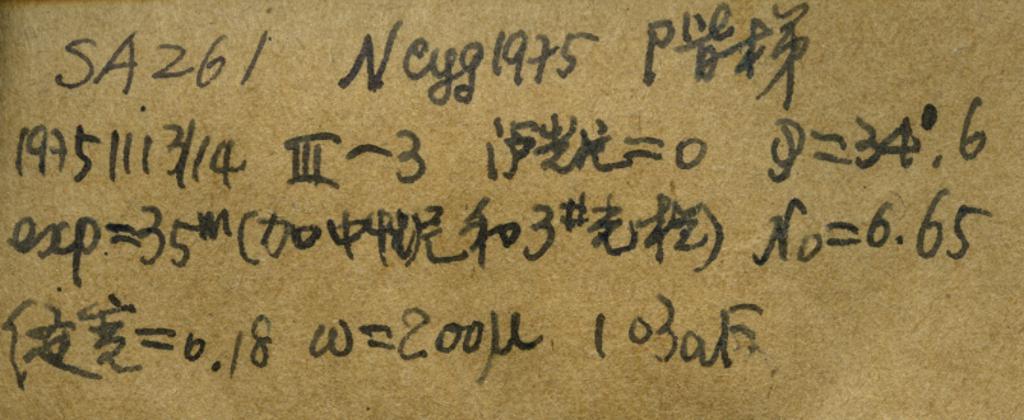 SA261 NCyg1975 阶梯
1975 11 13/14 III-3 滤光片=0 φ=34°.6
exp=35m(加中性 和3#光栏) N0=6.65
宽=0.18 ω=200μ 103aF